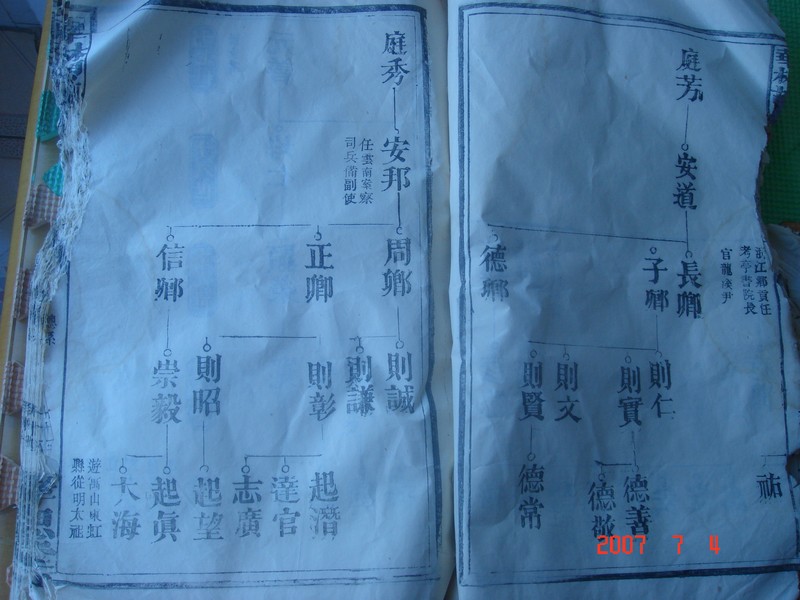 庭芳
安道
長卿
浙江鄉貢任
考亭書院長
官龍凌尹
子卿
德卿
則仁
則實
則文
則賢
祐
德善
德敬
德常
庭秀
安邦
任雲南案察
司兵備副使
周卿
正卿
信卿
則誠
則謙
則彰
則昭
崇毅
起潛
達官
志廣
起望
起眞
大海
遊寓山東虹
縣從明太祖
2007 7 4